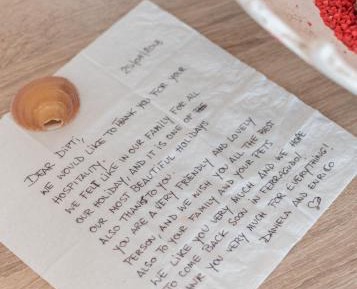 DEAR DIPTI,
WE WOULD LIKE TO THANK YOU FOR YOUR
HOSPITALITY.
WE FELT LIKE IN OUR FAMILY FOR ALL
OUR HOLIDAY, AND IT IS ONE OF
OUR MOST BEAUTIFUL HOLIDAYS
ALSO THANKS YOU.
YOU ARE A VERY FRIENDLY AND LOVELY
PERSON, AND WE WISH YOU ALL THE BEST
ALSO TO YOUR FAMILY AND YOUR PETS
WE LIKE YOU VERY MUCH AND WE HOPE
TO COME BACK SOON IN
THANK YOU VERY MUCH FOR EVERYTHING!
DANIELA AND ENRICO